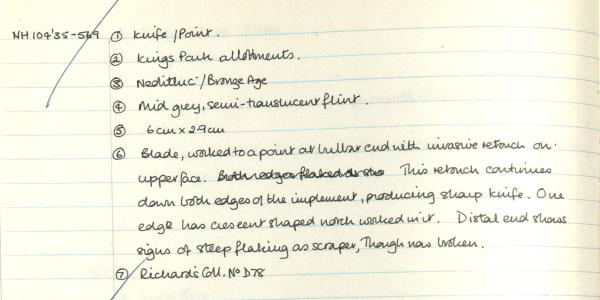 NH104'35-569 ① Knife/Point.
② Kings Park allotments.
③ Neolithic/Bronze Age
④ Mid grey, semi-translucent flint.
⑤ 6cm x 2.9cm
⑥ Blade, worked to a point at bulbar end with invasive retouch on
upper face. Both edges flaked This retouch continues
down both edges of the implement, producing sharp knife. One
edge has crescent shaped notch worked in it. Distal end shows
signs of steep flaking as scraper, Though now broken.
⑦ Richards Coll. No D78